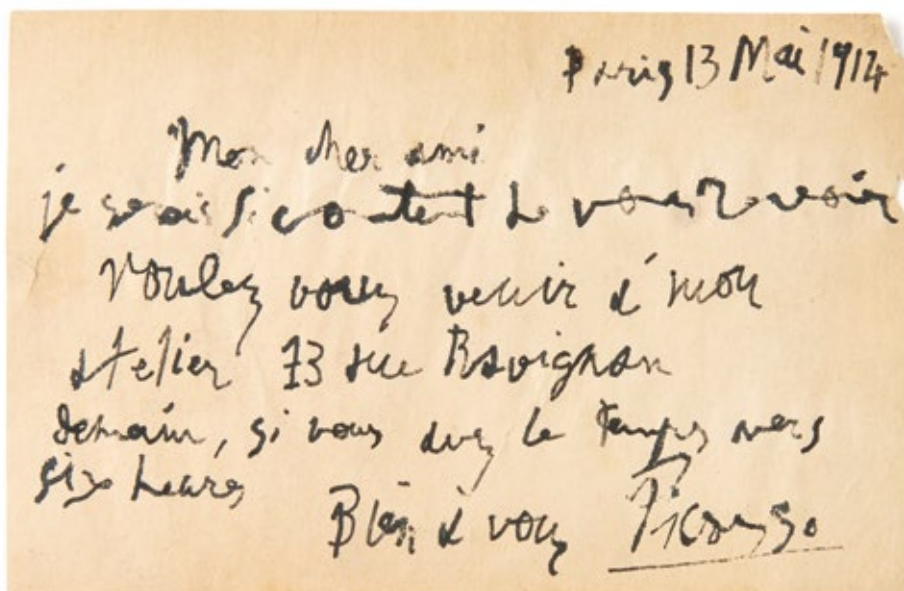 Paris 13 Mai 1914
Mon cher ami
je serais si content de vous revoir
Voulez vous venir à mon
atelier 13 rue Ravignan
demain, si vous avez le temps vers
six heures
Bien à vous Picasso